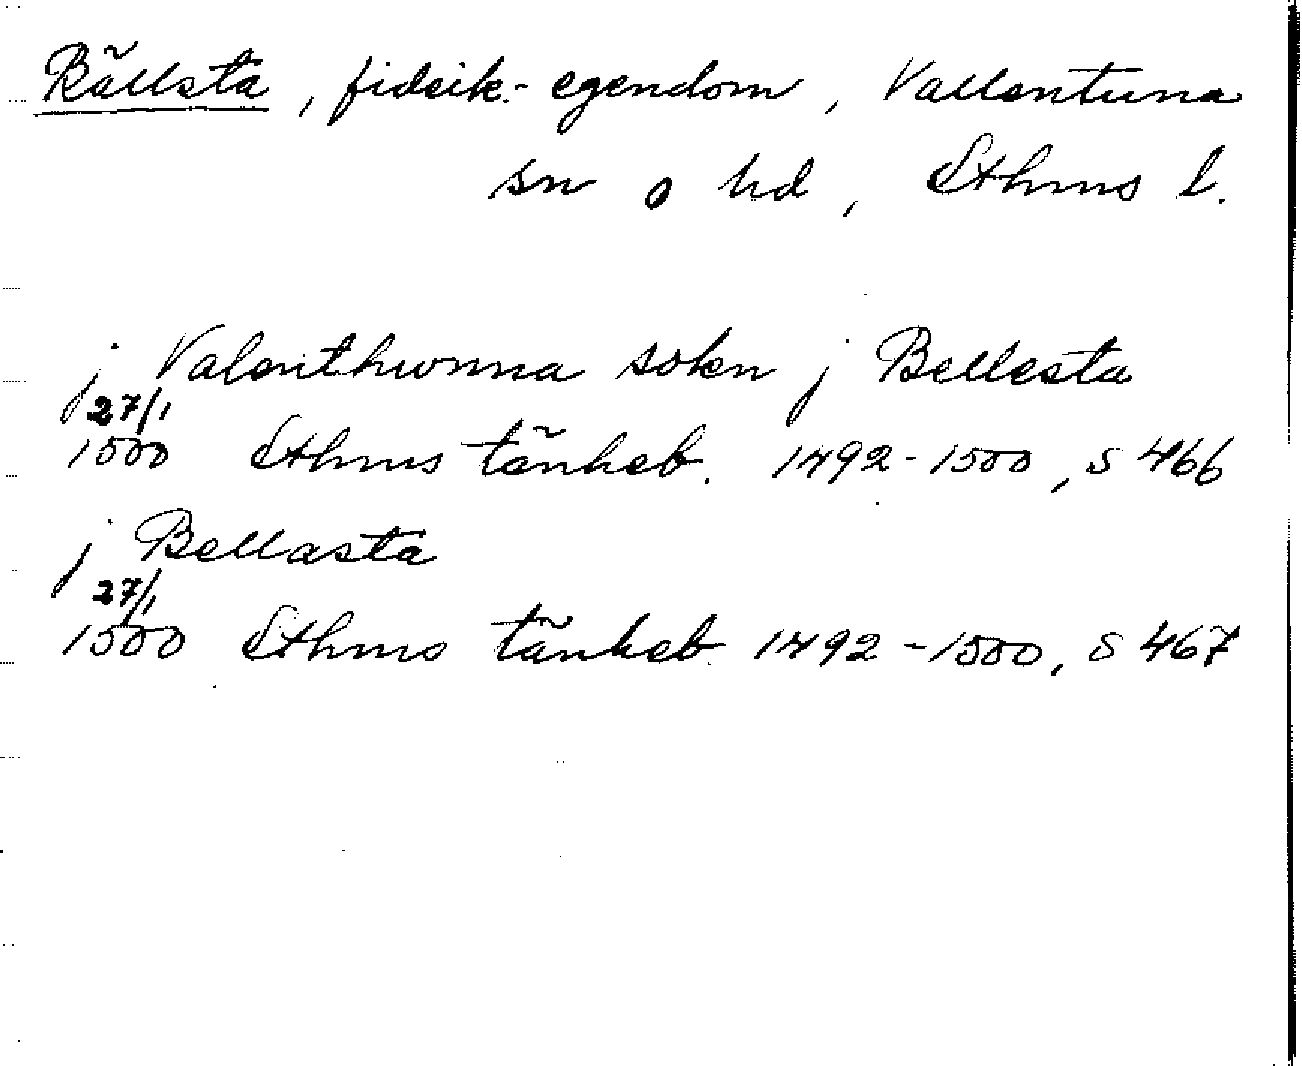 Bällsta, fideik.-egendom, Vallentuna
sn o hd, Sthms l.
j Valenthwnna sokn j Bellesta
27/1
1500 Sthms tänkeb. 1492-1500, s 466
j Bellasta
27/1
1500 Sthms tänkeb. 1492-1500, s 467